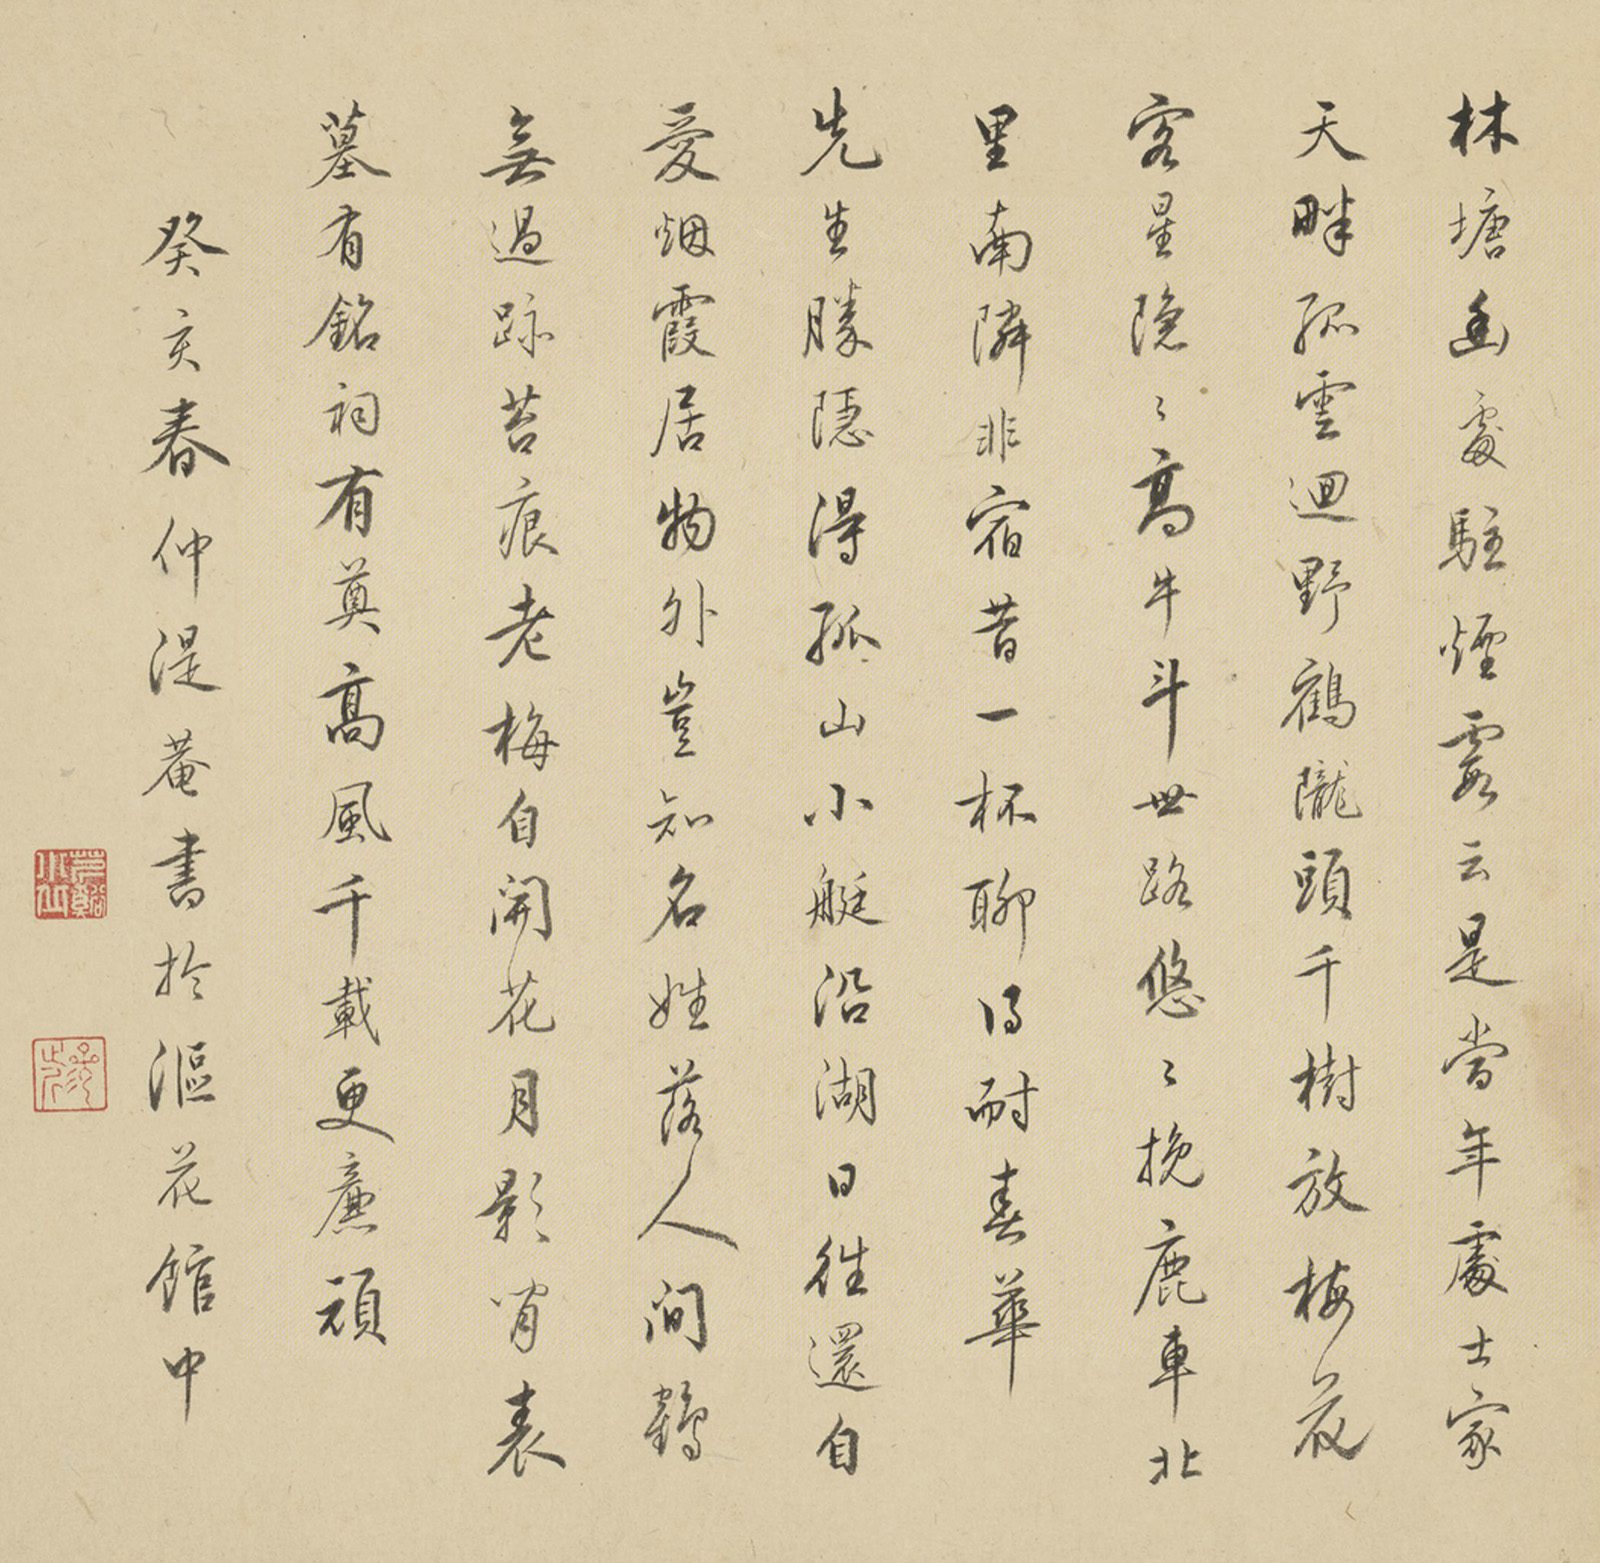 林塘幽處駐煙霞云是當年處士家
天畔孤雲迴野鶴隴頭千樹放梅花
客星隱〻高牛斗世路悠〻挽鹿車北
里南隣非宿昔一杯聊得耐春華
先生勝隱得孤山小艇沿湖日往還自
愛烟霞居物外豈知名姓落人間鶴
無過跡苔痕老梅自開花月影閒表
墓有銘祠有奠高風千載更廉頑
癸亥春仲湜菴書於漚花館中